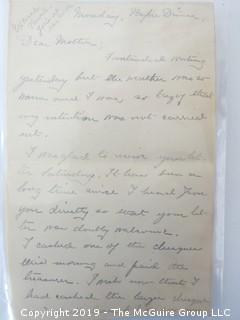 Monday, Before Dinner,
Dear Mother;
I intended writing
yesterday but the weather was so
warm and I was so lazy that
my intention was not carried
out.
I was glad to receive your let-
ter Saturday. It has been a
long time since I heard from
you directly so that your let-
ter was doubly welcome.
I cashed one of the cheques
this morning and paid the
treasurer. I wish now that I
had cashed the larger cheque
Copyright 2019 - The McGuire Group LLC